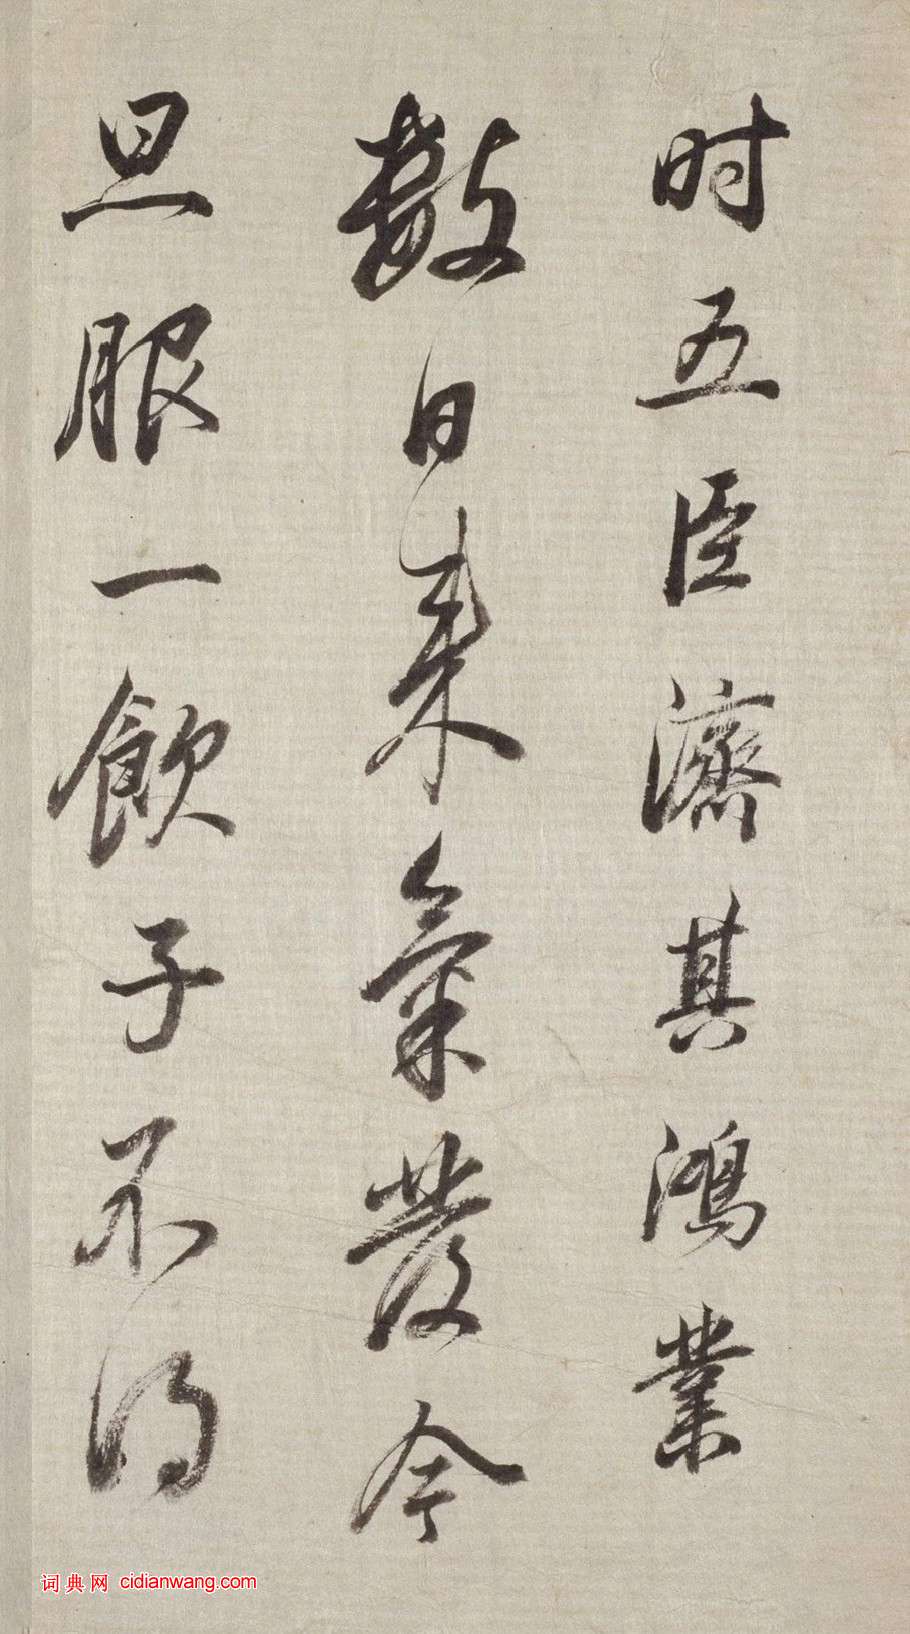 时五臣濟其鴻業
數日来氣發今
旦服一飲子不得
词典网 cidianwang.com